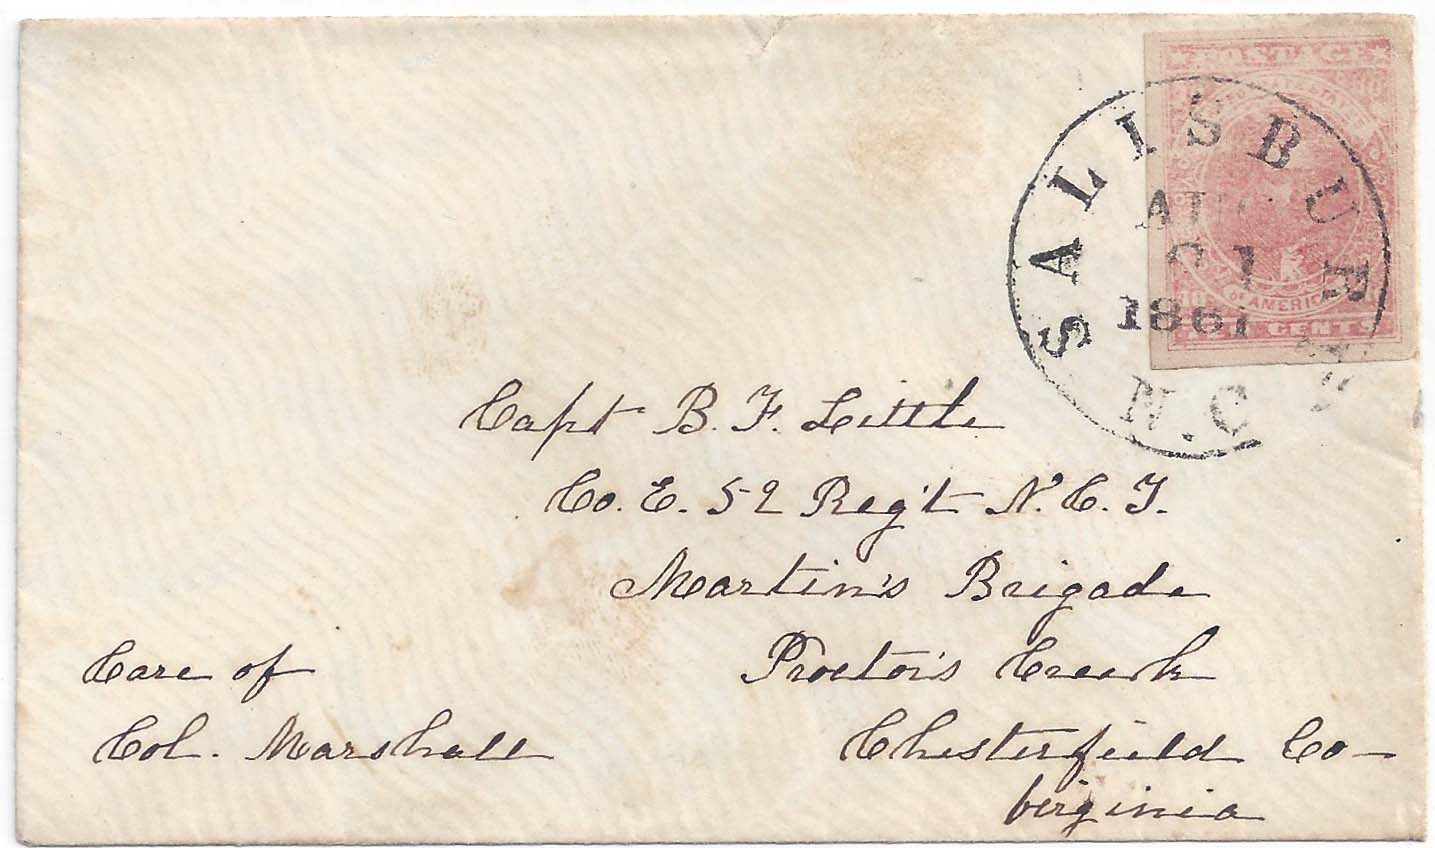 POSTAGE
OF AMERICA
CENTS
SALISBURY
AUG
21
1861
N.C
Capt B. F. Little
Co. E. 52 Reg't N. C. T.
Martin's Brigade
Proctor's Creek
Chesterfield Co—
Virginia
Care of
Col. Marshall